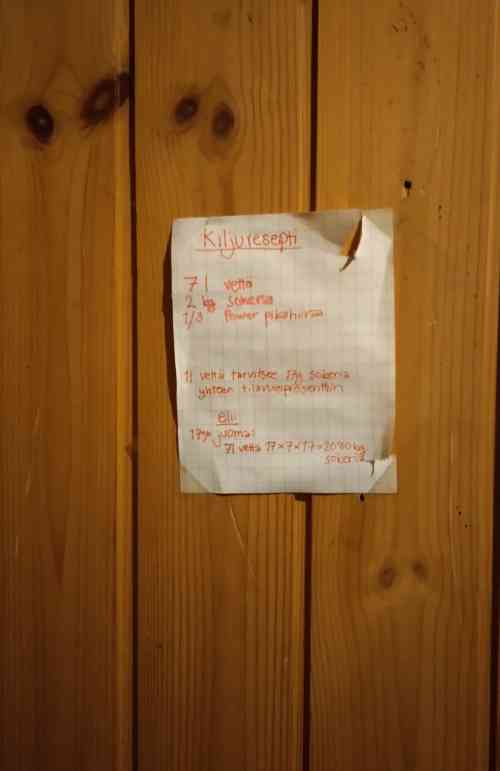 Kiljuresepti
7 l vettä
2 kg sokeria
1/3 Power pikahiivaa
1l vettä tarvitsee 17g sokeria
yhteen tilavuusprosenttiin
eli:
17% juoma:
7l vettä 17×7×17=2020 kg
sokeria